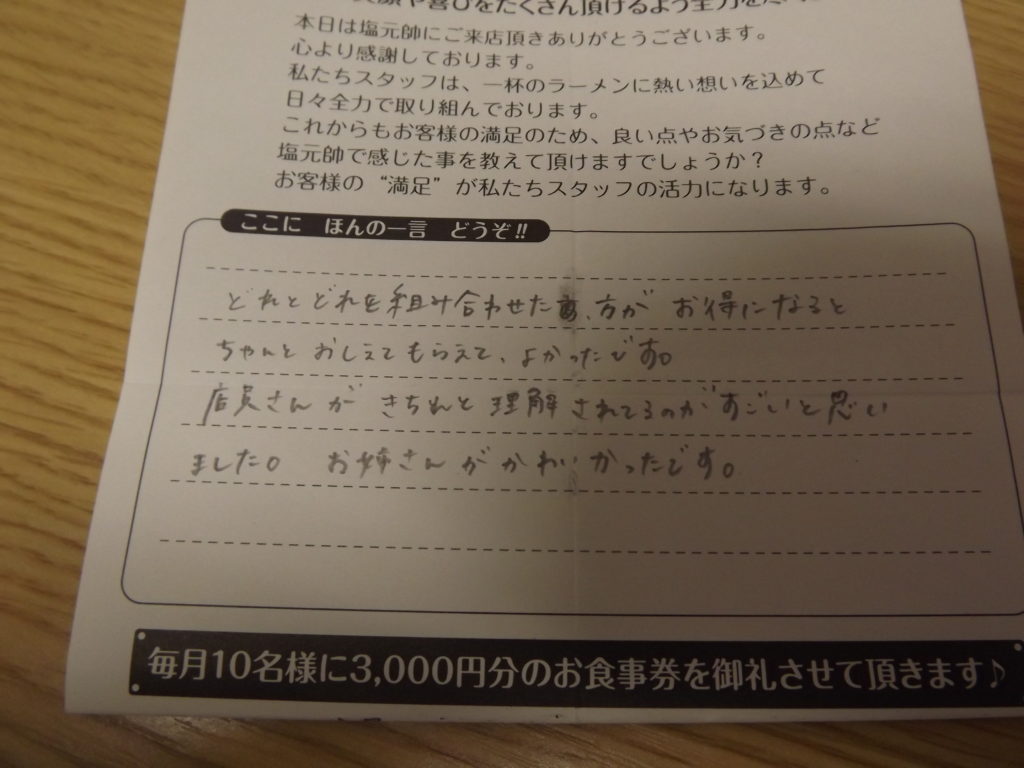 笑顔や喜びをたくさん頂けるよう全力を
本日は塩元帥にご来店頂きありがとうございます。
心より感謝しております。
私たちスタッフは、一杯のラーメンに熱い想いを込めて
日々全力で取り組んでおります。
これからもお客様の満足のため、良い点やお気づきの点など
塩元帥で感じた事を教えて頂けますでしょうか？
お客様の“満足”が私たちスタッフの活力になります。
ここに ほんの一言 どうぞ!!
どれとどれを組み合わせた 方が お得になると
ちゃんと おしえてもらえて、よかったです。
店員さんが きちんと理解されてるのがすごいと思い
ました。 お姉さんがかわいかったです。
毎月10名様に3,000円分のお食事券を御礼させて頂きます♪